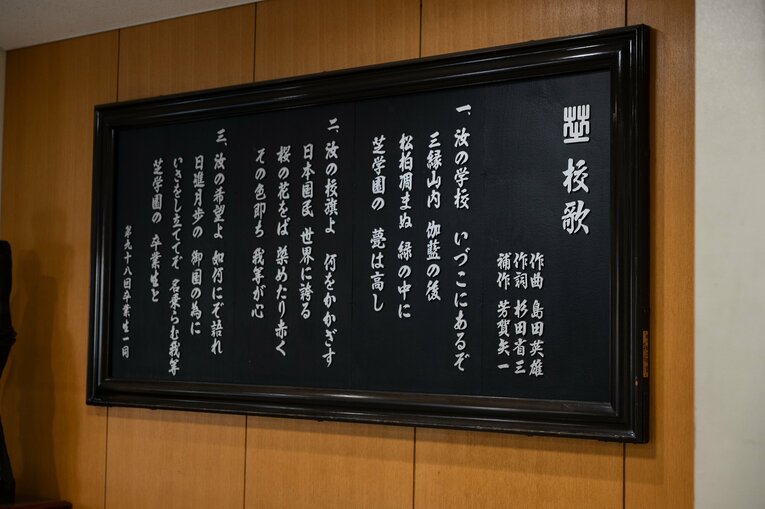 校歌
作曲 島田英雄
作詞 杉田省三
補作 芳賀矢一
一、汝の学校 いづこにあるぞ
三縁山内 伽藍の後
松柏凋まぬ 緑の中に
芝学園の 甍は高し
二、汝の校旗よ 何をかかざす
日本国民 世界に誇る
桜の花をば 染めたり赤く
その色即ち 我等が心
三、汝の希望よ 如何にぞ語れ
日進月歩の 御国の為に
いさをし立ててぞ 名乗らむ我等
芝学園の 卒業生と
第九十八回卒業生一同